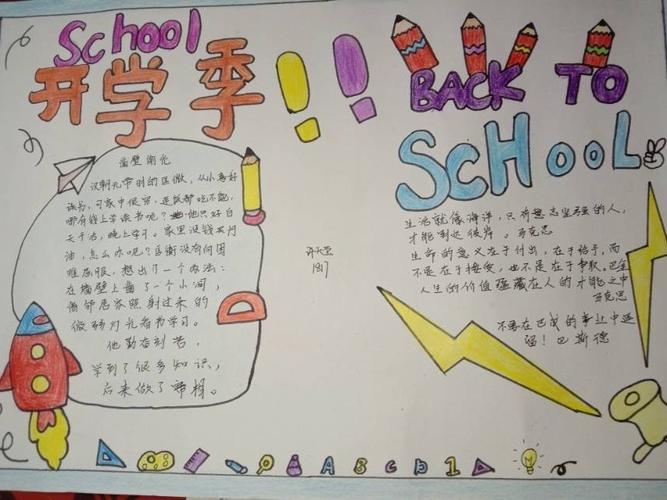 School
开学季!!
BACK TO
SCHOOL
凿壁偷光
汉朝元帝时的匡衡，从小喜好
读书，可家中很穷，连饭都吃不饱，
哪有钱上学读书呢？他只好白
天干活，晚上学习。家里没钱买灯
油，怎么办呢？匡衡没有向困
难屈服，想出了一个办法：
在墙壁上凿了一个小洞，
借邻居家照射过来的
微弱灯光看书学习。
他勤奋刻苦，
学到了很多知识，
后来做了帝相。
187
生活就像海洋，只有意志坚强的人，
才能到达彼岸。马克思
生命的意义在于付出，在于给予，而
不是在于接受，也不是在于争取。巴金
人生的价值蕴藏在人的才能之中
马克思
不要在已成的事业中逗
留！巴斯德
A B C D 1